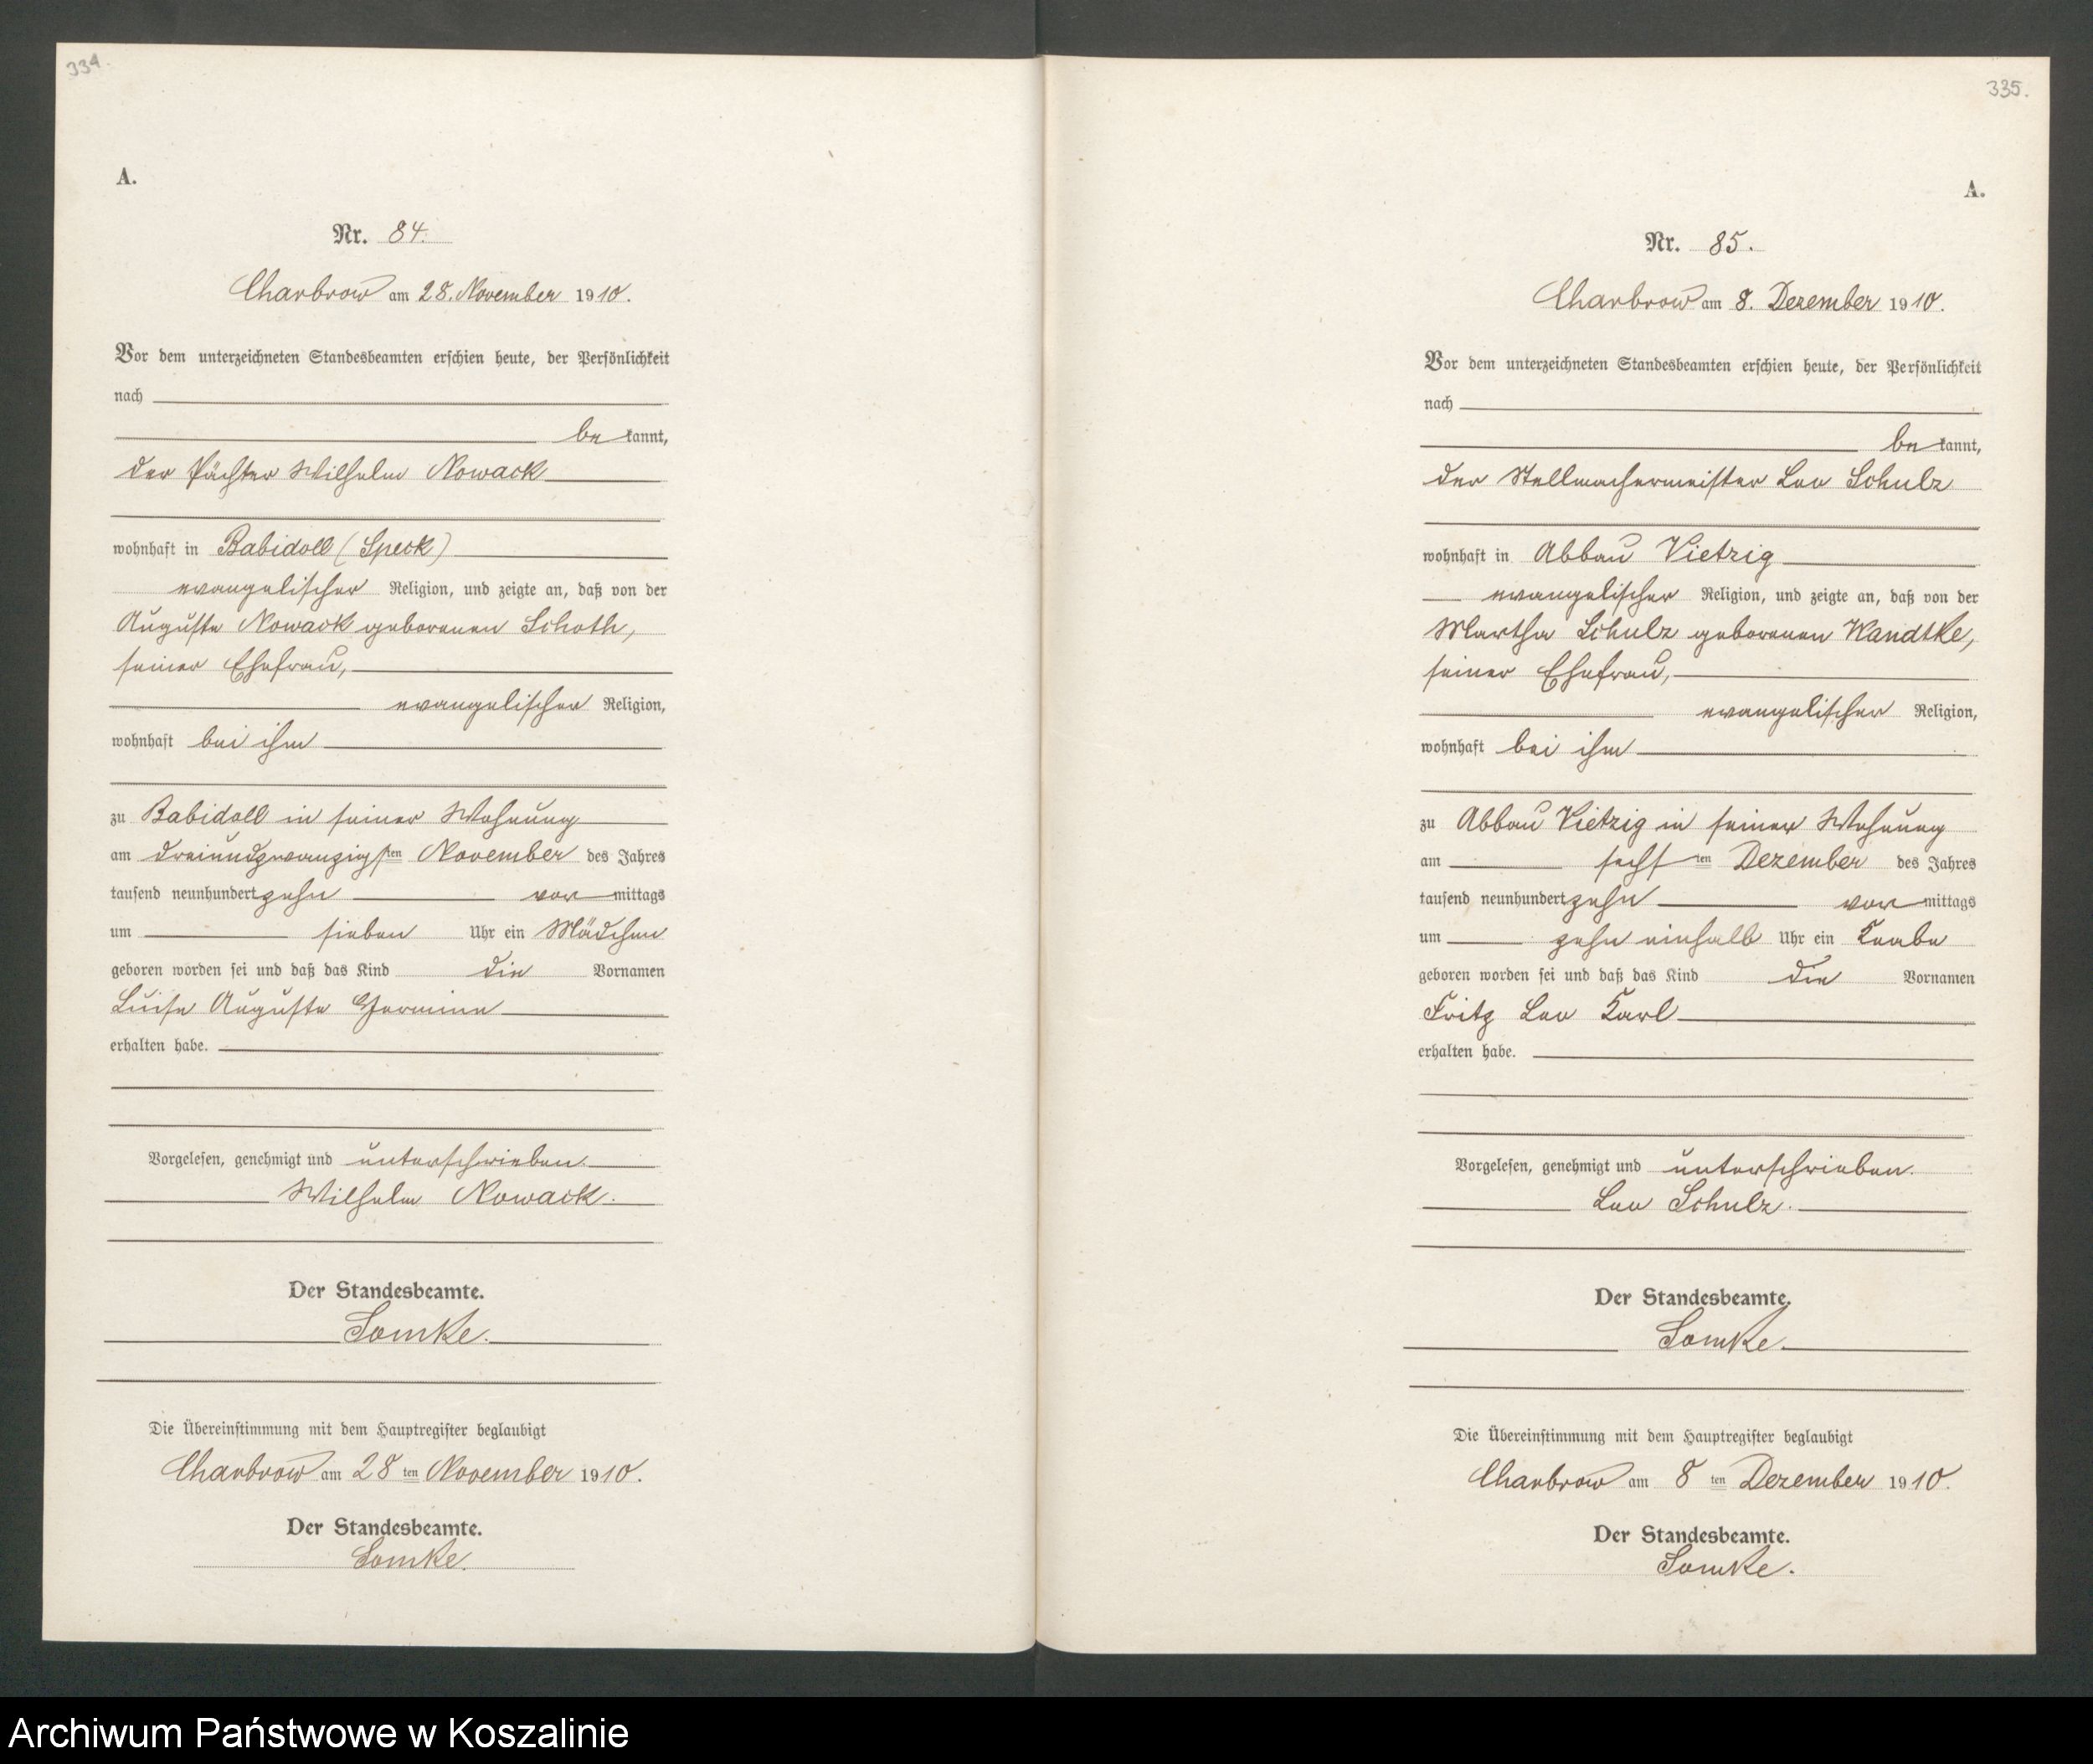 334.
A.
Nr. 84.
Charbrow am 28. November 1910.
Vor dem unterzeichneten Standesbeamten erschien heute, der Persönlichkeit
nach
bekannt,
der Pächter Wilhelm Nowack
wohnhaft in Babidoll (Speck)
evangelischer Religion, und zeigte an, daß von der
Auguste Nowack geborenen Schoth,
seiner Ehefrau,
evangelischer Religion,
wohnhaft bei ihm
zu Babidoll in seiner Wohnung
am dreiundzwanzigsten November des Jahres
tausend neunhundertzehn vormittags
um sieben Uhr ein Mädchen
geboren worden sei und daß das Kind die Vornamen
Luise Auguste Hermine
erhalten habe.
Vorgelesen, genehmigt und unterschrieben.
Wilhelm Nowack.
Der Standesbeamte.
Lomke.
Die Übereinstimmung mit dem Hauptregister beglaubigt
Charbrow am 28ten November 1910.
Der Standesbeamte.
Lomke.
335.
A.
Nr. 85.
Charbrow am 8. Dezember 1910.
Vor dem unterzeichneten Standesbeamten erschien heute, der Persönlichkeit
nach
bekannt,
der Stellmachermeister Leo Schulz
wohnhaft in Abbau Vietzig
evangelischer Religion, und zeigte an, daß von der
Martha Schulz geborenen Wandtke,
seiner Ehefrau,
evangelischer Religion,
wohnhaft bei ihm
zu Abbau Vietzig in seiner Wohnung
am sechsten Dezember des Jahres
tausend neunhundertzehn vormittags
um zehn einhalb Uhr ein Knabe
geboren worden sei und daß das Kind die Vornamen
Fritz Leo Karl
erhalten habe.
Vorgelesen, genehmigt und unterschrieben.
Leo Schulz.
Der Standesbeamte.
Lomke.
Die Übereinstimmung mit dem Hauptregister beglaubigt
Charbrow am 8ten Dezember 1910.
Der Standesbeamte.
Lomke.
Archiwum Państwowe w Koszalinie